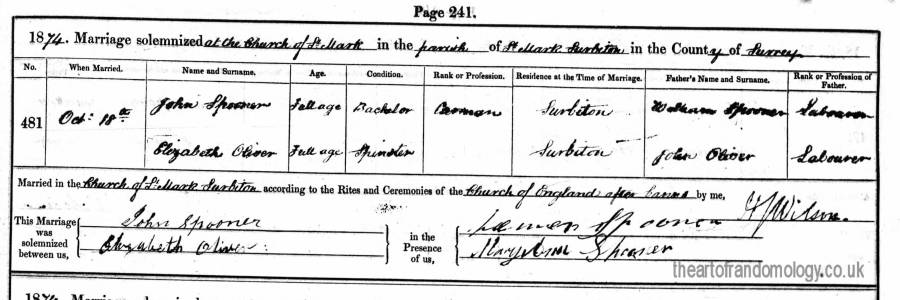 Page 241.
1874. Marriage solemnized at the Church of St Mark in the parish of St Mark Surbiton in the County of Surrey
No. When Married. Name and Surname. Age. Condition. Rank or Profession. Residence at the Time of Marriage. Father's Name and Surname. Rank or Profession of Father.
481 Oct: 18th John Spooner Full age Bachelor Carman Surbiton William Spooner Labourer
Elizabeth Oliver Full age Spinster Surbiton John Oliver Labourer
Married in the Church of St Mark Surbiton according to the Rites and Ceremonies of the Church of England after banns by me,
Wilson.
This Marriage was solemnized between us,
John Spooner
Elizabeth Oliver
in the Presence of us,
Spooner
Mary Ann Spooner
theartofrandomology.co.uk
1874. Marriage